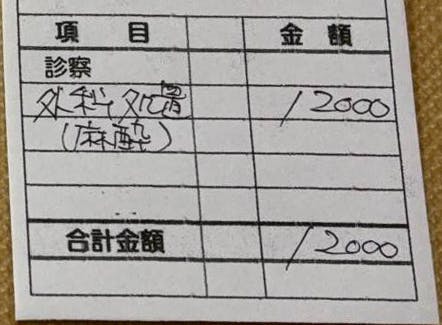 項 目 金 額
診察
外科処置 12000
(麻酔)
合計金額 12000